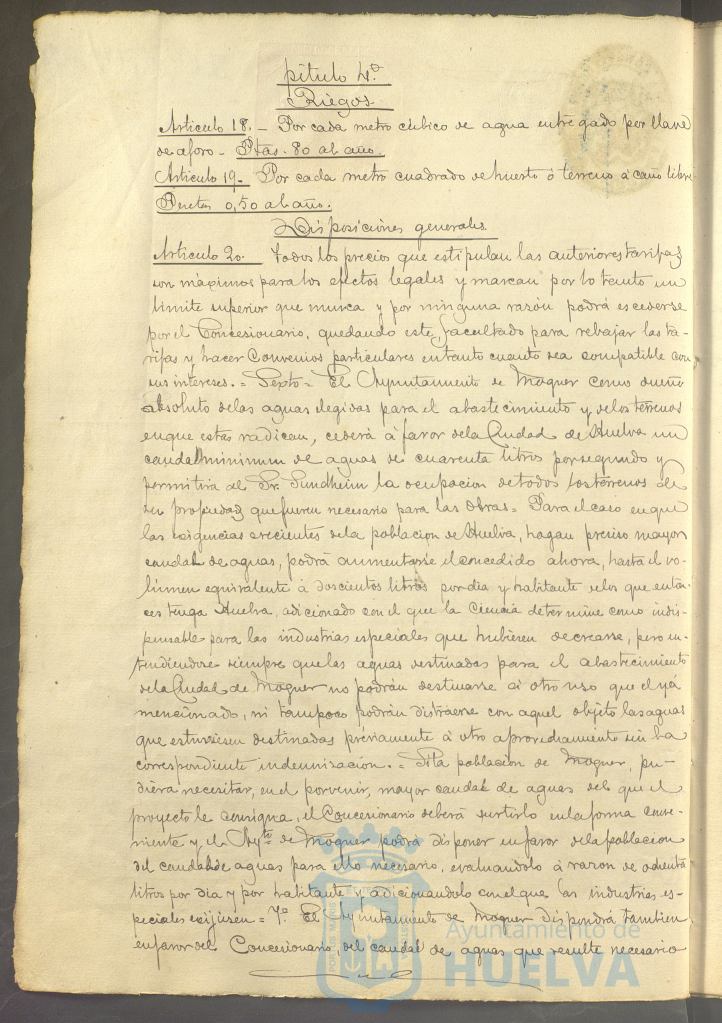 pitulo 4.º
Riegos.
Articulo 18. — Por cada metro cúbico de agua entregado por llave
de aforo — Ptas. 80 al año.
Articulo 19 — Por cada metro cuadrado de huerto ó terreno a caño libre
Pesetas 0,50 al año.
Disposiciones generales.
Articulo 20. Todos los precios que estipulan las anteriores tarifas
son máximos para los efectos legales y marcan por lo tanto un
limite superior que nunca y por ninguna razón podrá escederse
por el Concesionario, quedando este facultado para rebajar las ta-
rifas y hacer Convenios particulares en tanto cuanto sea compatible con
sus intereses. = Sexto = El Ayuntamiento de Moguer como dueño
absoluto de las aguas elegidas para el abastecimiento y de los terrenos
en que estas radican, cederá á favor de la Ciudad de Huelva un
caudal minimum de aguas de cuarenta litros por segundo y
permitirá al Sr. Sundheim la ocupacion de todos los terrenos de
su propiedad que fueren necesario para las obras = Para el caso en que
las exigencias crecientes de la poblacion de Huelva, hagan preciso mayor
caudal de aguas, podrá aumentarse el concedido ahora, hasta el vo-
lúmen equivalente á doscientos litros por dia y habitante de los que enton-
ces tenga Huelva, adicionado con el que la Ciencia determine como indis-
pensable para las industrias especiales que hubiesen de crearse, pero en-
tendiendose siempre que las aguas destinadas para el abastecimiento
de la Ciudad de Moguer no podrán destinarse á otro uso que el yá
mencionado, ni tampoco podrán distraerse con aquel objeto las aguas
que estuviesen destinadas previamente á otro aprovechamiento sin la
correspondiente indemnizacion. = Si la poblacion de Moguer, pu-
diera necesitar, en el porvenir, mayor caudal de aguas del que el
proyecto le consigna, el Concesionario deberá surtirlo en la forma conve-
niente y el Ayto. de Moguer podrá disponer en favor de la poblacion
del caudal de aguas para ello necesario, evaluandolo á razon de ochenta
litros por dia y por habitante y adicionandolo con el que las industrias es-
peciales exijiesen = 7.º El Ayuntamiento de Moguer dispondrá tambien
en favor del Concesionario, del caudal de aguas que resulte necesario
Ayuntamiento de
HUELVA